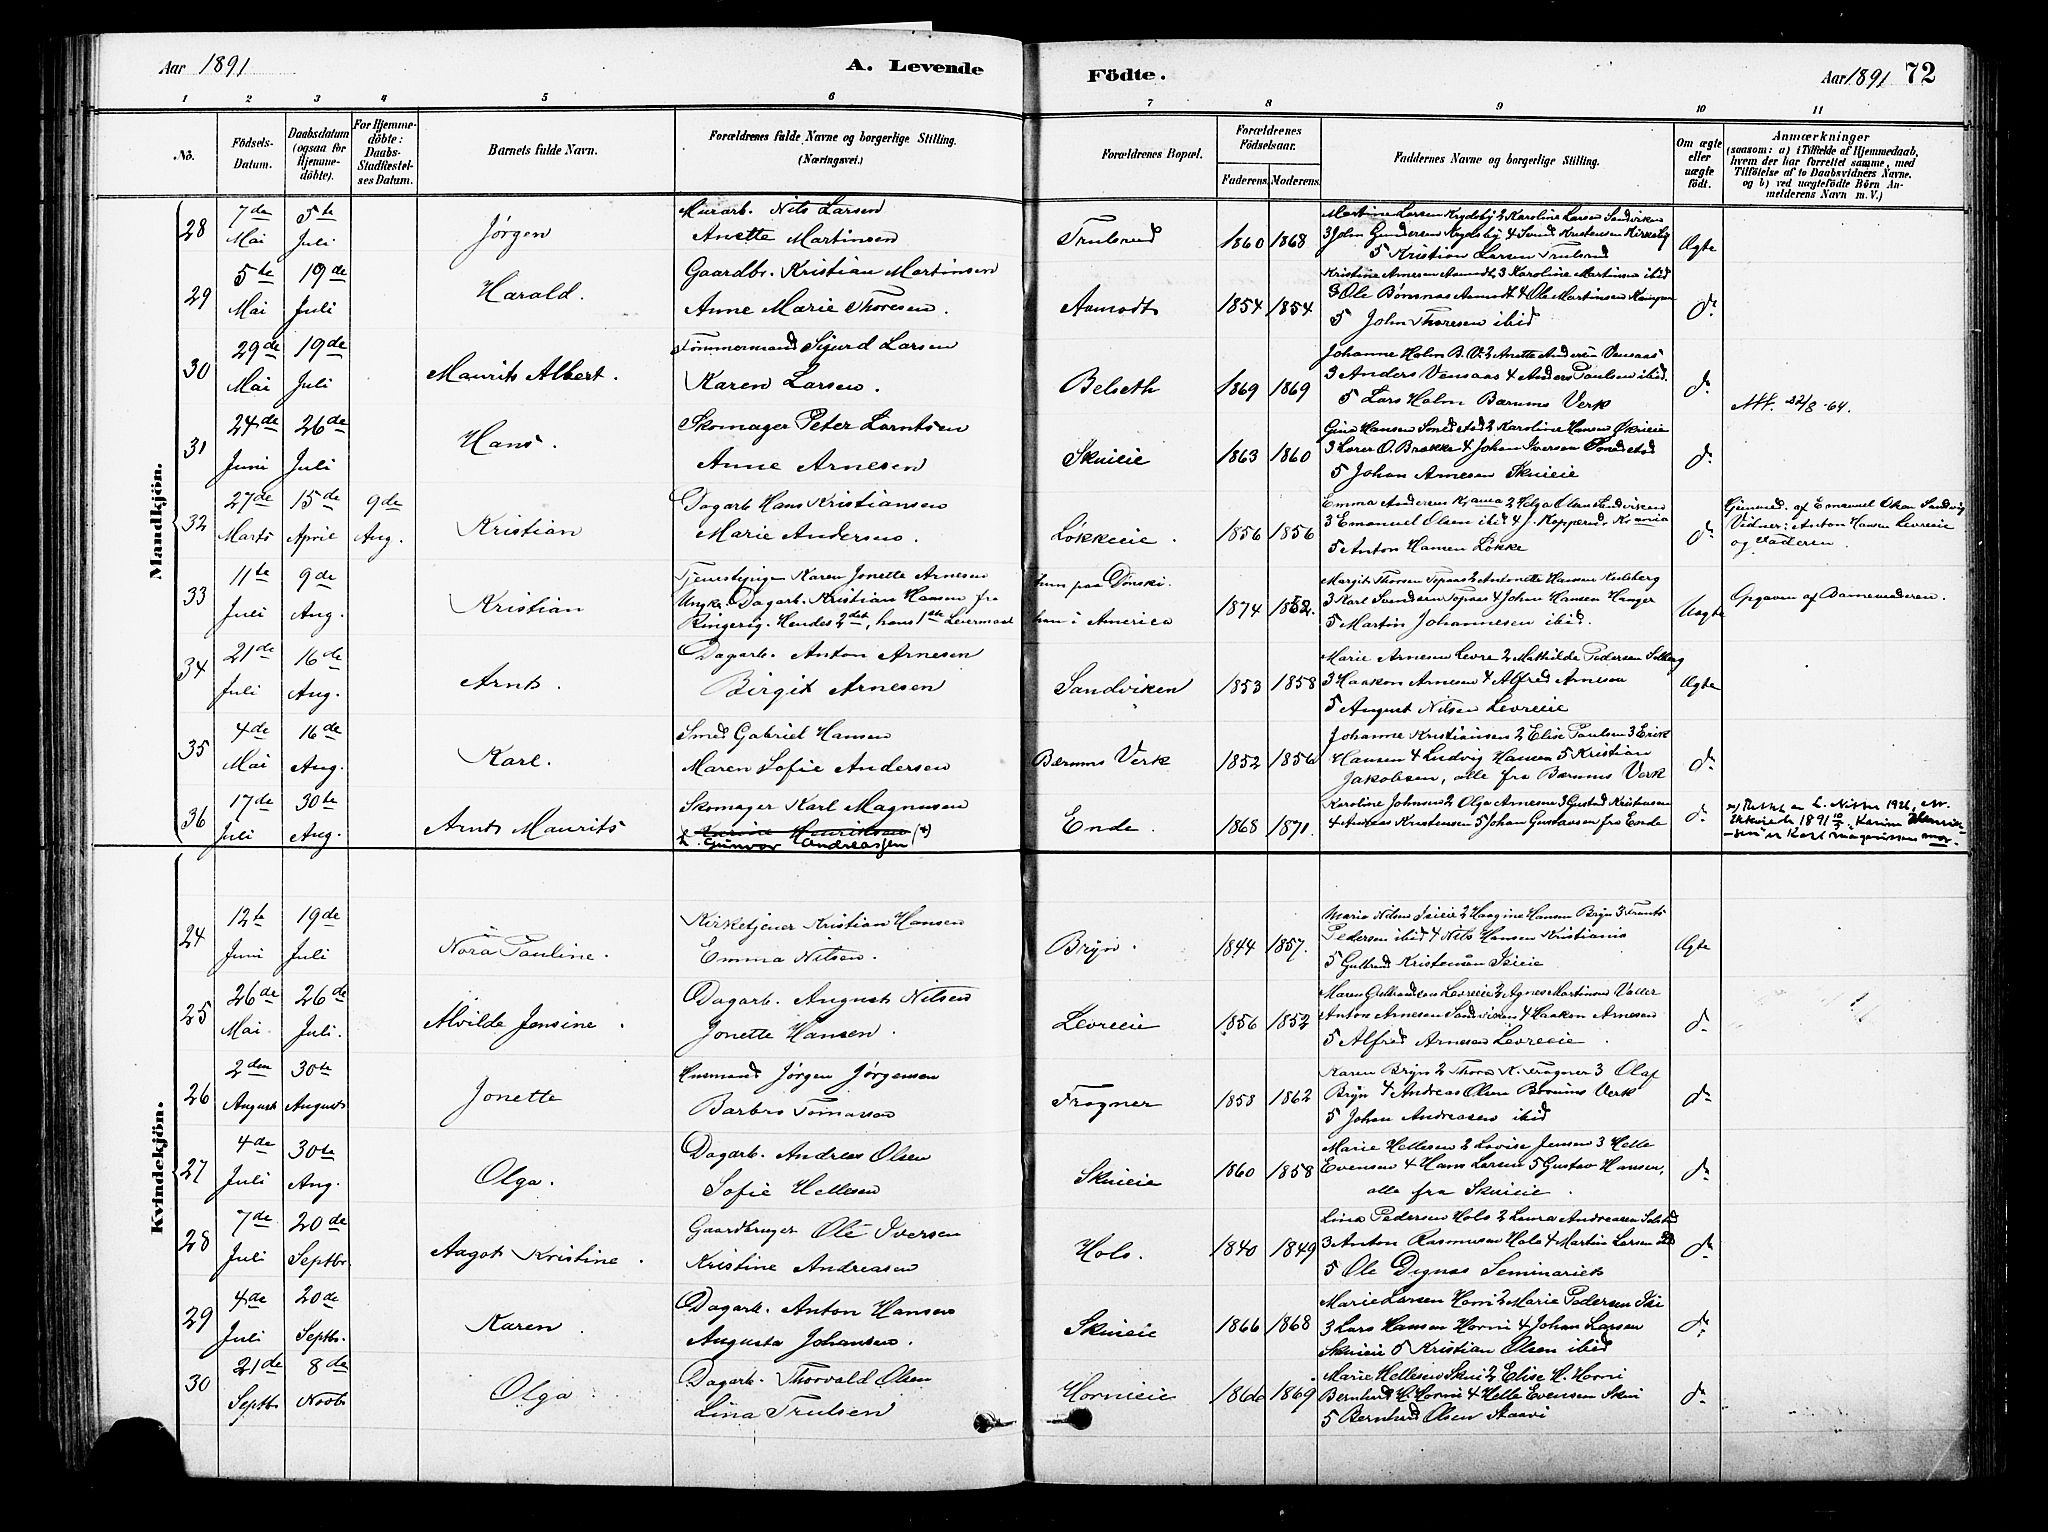 Aar 1891
A. Levende
Födte.
Aar 1891 72
1 2 3 4 5 6 7 8 9 10 11
No.
Födsels-
Datum.
Daabsdatum
(ogsaa for
Hjemme-
döbte).
For Hjemme-
döbte:
Daabs-
Stadfæstel-
ses Datum.
Barnets fulde Navn.
Forældrenes fulde Navne og borgerlige Stilling.
(Næringsvei.)
Forældrenes Bopæl.
Forældrenes
Födselsaar.
Faderens. Moderens.
Faddernes Navne og borgerlige Stilling.
Om ægte
eller
uægte
födt.
Anmærkninger
(saasom: a) i Tilfælde af Hjemmedaab,
hvem der har forrettet samme, med
Tilföielse af to Daabsvidners Navne,
og b) ved uægtefödte Börn An-
melderens Navn m. V.)
Mandkjön.
28 7de Mai 5te Juli Jørgen Murarb. Nils Larsen
Anette Martinsen Trulsrud 1860 1868 Ægte
5 Kristian Larsen Trulsrud
29 5te Mai 19de Juli Harald. Gaardbr. Kristian Martinsen
Anne Marie Thoresen. Aamodt 1854 1854 d°
Kristine Arnesen Aamodt 3 Karoline Martinsen ibid
3 Ole Bønsnas Aamodt 4 Ole Martinsen
5 John Thoresen ibid
30 29de Mai 19de Juli Maurits Albert. Tømmermand Sigurd Larsen
Karen Larsen. Belseth 1869 1869 d°
Johanne Holm B. V. 2 Anette Andersen Vensaas
3 Anders Vensaas 4 Anders Paulsen ibid.
5 Lars Holm Bærums Verk
31 24de Juni 26de Juli Hans. Skomager Peter Larntsen
Anne Arnesen Skuieie 1863 1860 d°
5 Johan Arnesen Skuieie
32 27de Marts 15de April 9de Aug. Kristian Dagarb. Hans Kristiansen
Marie Andersen. Løkkeeie. 1856 1856 d°
3 Emanuel Olsen ibid 4 J. Kopperud Kr.ania
5 Anton Hansen Løkke
Vidner: Anton Hansen Levreeie
og Faderen.
33 11te Juli 9de Aug. Kristian Tjenestepige Karen Jonette Arnesen
Ungk. Dagarb. Kristian Hansen fra
Ringerig. Hendes 2det, hans 1ste Leiermaal
hun paa Dønski.
han i America 1874 1852. Uægte
3 Karl Svendsen Tepaas 4 John Hansen Hanger
5 Martin Johannesen ibid.
Opgaven af Barnemoderen.
34 21de Juli 16de Aug. Arnt. Dagarb. Anton Arnesen
Birgit Arnesen Sandviken 1853 1858 Ægte
Marie Arnesen Levre 2 Mathilde Pedersen Solberg
3 Haakon Arnesen 4 Alfred Arnesen
5 August Nilsen Levreeie
35 4de Mai 16de Aug. Karl. Smed Gabriel Hansen
Maren Sofie Andersen Bærums Verk 1852 1856 d°
Johanne Kristiansen 2 Elise Paulsen 3 Erik
Hansen 4 Ludvig Hansen 5 Kristian
Jakobsen, alle fra Bærums Verk
36 17de Juli 30te Aug. Arnt Maurits Skomager Karl Magnusen
Karine Henriksen (*)
Gunvor Andreassen Ende. 1868 1871. d°
Karoline Johnsen 2 Olga Arnesen 3 Gustad Kristensen
4 Andreas Kristensen 5 Johan Gustavsen fra Ende
Kvindekjön.
24 12te Juni 19de Juli Nora Pauline. Kirketjener Kristian Hansen
Emma Nilsen. Bryn. 1844 1857. Ægte
Maria Nilsen Skieie 2 Haagine Hansen Bryn 3 Frants
Pedersen ibid 4 Nils Hansen Kristiania
5 Gulbrand Kristensen Skieie
25 26de Mai. 26de Juli. Alvilde Jensine. Dagarb. August Nilsen
Jonette Hansen. Levreeie 1856 1852 d°
Anton Arnesen Sandviken 4 Haakon Arnesen
5 Alfred Arnesen Levreeie.
26 2den August 30te August Jonette Husmand Jørgen Jørgensen
Barbro Tomassen Frogner 1858 1862 d°
Karen Bryn 2 Thora K. Frogner 3 Olaf
Bryn 4 Andreas Olsen Bærums Verk
5 Johan Andreasen ibid
27 4de Juli 30te Aug. Olga. Dagarb. Andreas Olsen
Sofie Hellesen Skuieie 1860 1858 d°
Marie Hellesen 2 Lovise Jensen 3 Helle
Evensen 4 Hans Larsen 5 Gustav Hansen,
alle fra Skuieie.
28 7de Juli 20de Septbr. Aagot Kristine. Gaardbruger Ole Iversen
Kristine Andreasen Hols. 1840 1849 d°
3 Anton Rasmusen Hols 4 Martin Larsen
5 Ole Dignas Seminariet
29 4de Juli 20de Septbr. Karen. Dagarb. Anton Hansen
Augusta Johansen. Skuieie 1866 1868 d°
Marie Larsen Horni 2 Marie Pedersen Ski
3 Lars Hansen Horni 4 Johan Larsen
Skuieie 5 Kristian Olsen ibid
30 21de Septbr 8de Novbr Olga Dagarb. Thorvald Olsen
Lina Trulsen Hornieie 1866 1869 d°
Marie Hellesen Skui 2 Elise H. Horni
Bernhard H. Horni 4 Helle Evensen Skui
5 Bernhard Olsen Staavi